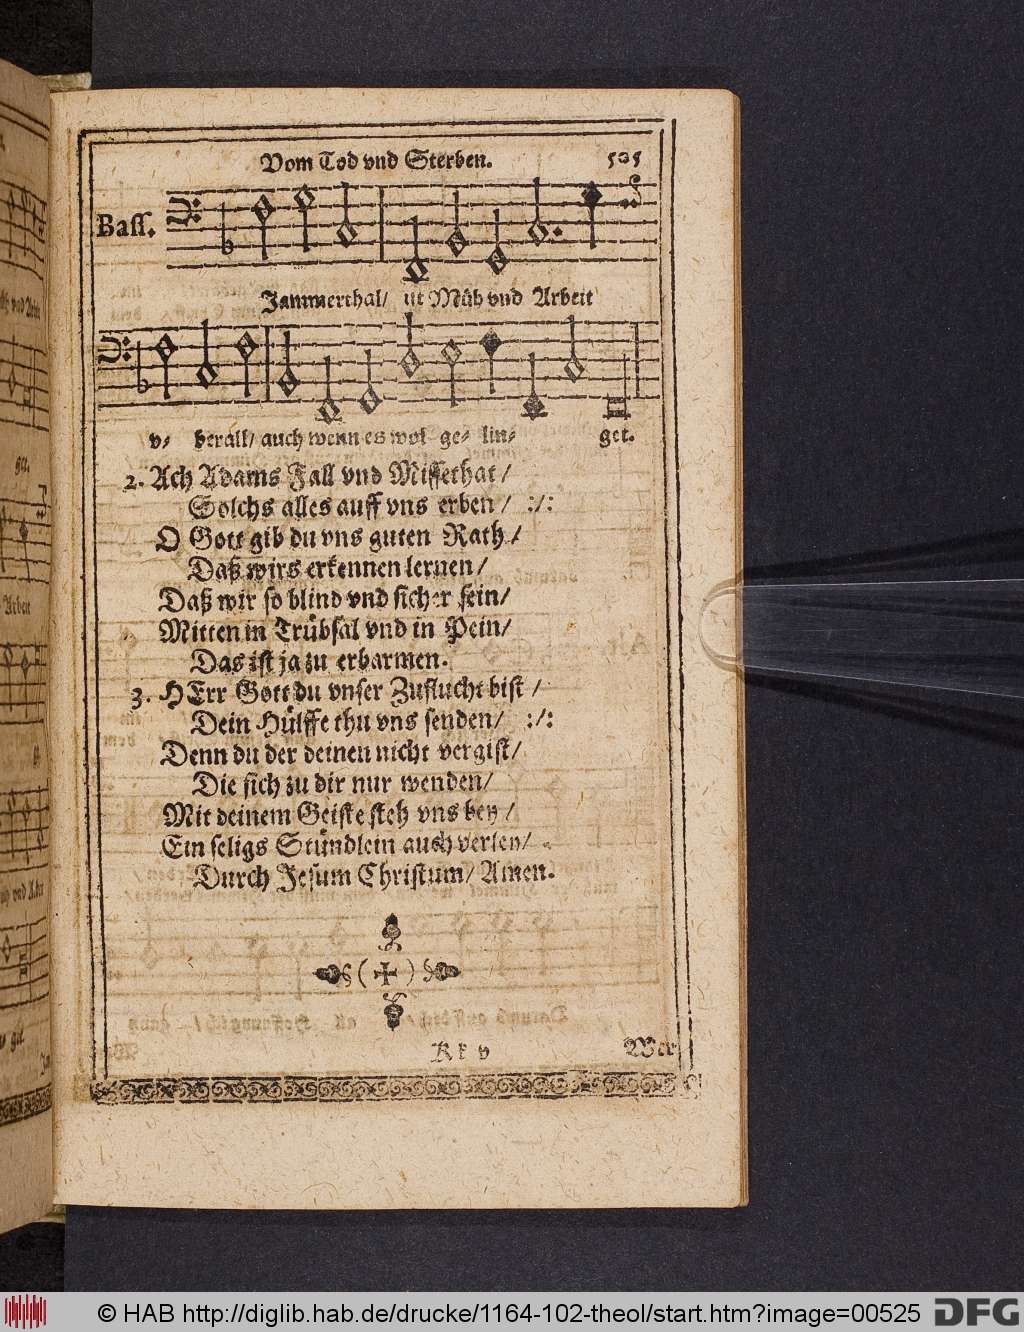 Vom Tod vnd Sterben. 505
Bass.
Jammerthal/ ist Müh vnd Arbeit
v- berall/ auch wenn es wol ge- lin- get.
2. Ach Adams Fall vnd Missethat/
Solchs alles auff vns erben/ :/:
O Gott gib du vns guten Rath/
Daß wirs erkennen lernen/
Daß wir so blind vnd sicher sein/
Mitten in Trübsal vnd in Pein/
Das ist ja zu erbarmen.
3. HErr Gott du vnser Zuflucht bist/
Dein Hülffe thu vns senden/ :/:
Denn du der deinen nicht vergist/
Die sich zu dir nur wenden/
Mit deinem Geiste steh vns bey/
Ein seligs Stündlein auch verley/
Durch Jesum Christum/ Amen.
K k v Wer
© HAB http://diglib.hab.de/drucke/1164-102-theol/start.htm?image=00525 DFG